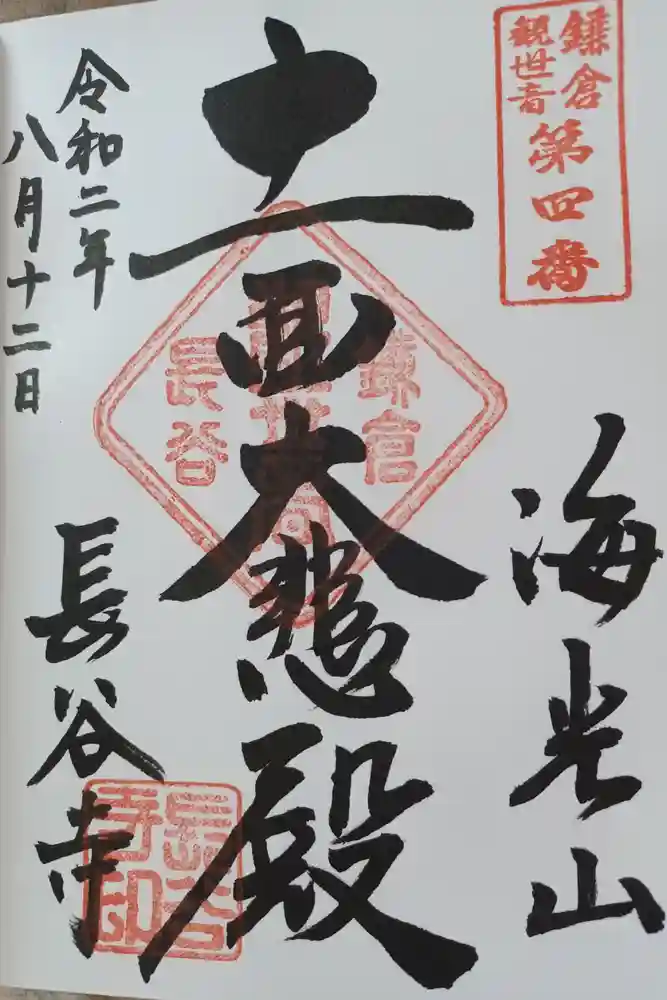 鎌倉
観世音
第四番
海光山
十一面大悲殿
鎌倉
観世音
長谷
令和二年
八月十二日
長谷寺
長谷
寺印